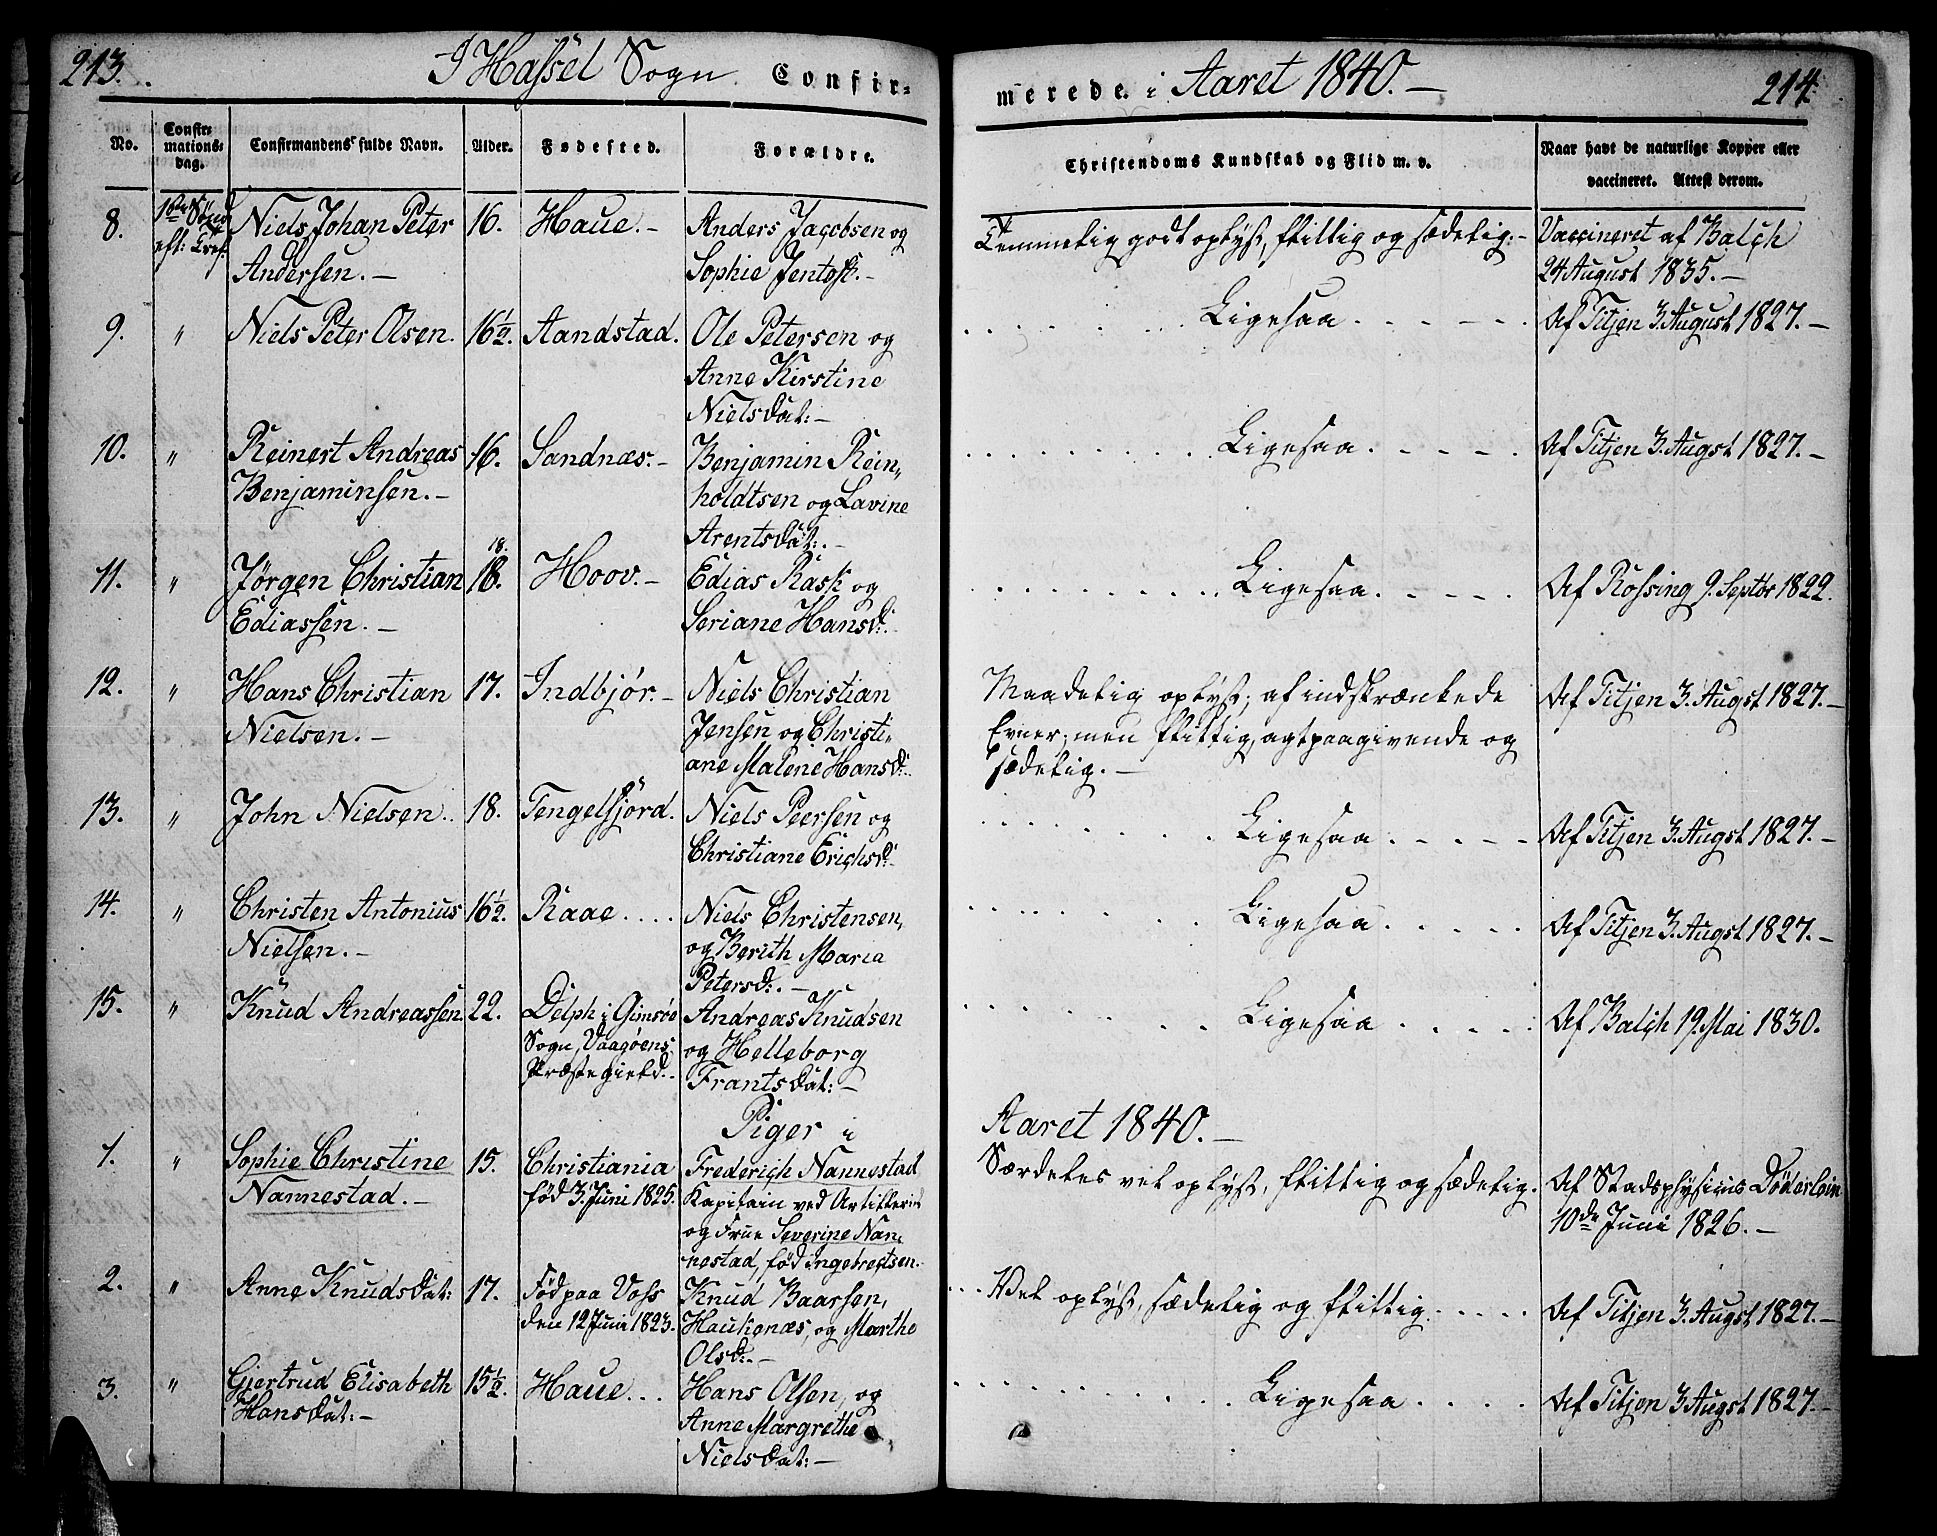 213.
I Hassel Sogn. Confir-
No.
Confir-
mations-
dag.
Confirmandens fulde Navn.
Alder.
Fødested.
Forældre.
8.
1ste Sønd.
eft:
Niels Johan Peter
Andersen. –
16.
Haue. –
Anders Jacobsen og
Sophie Jentoft. –
9.
"
Niels Peter Olsen.
16½.
Aandstad.
Ole Petersen og
Anne Kirstine
Nielsdat: –
10.
"
Reinert Andreas
Benjaminsen. –
16.
Sandnæs. –
Benjamin Rein,,
holdtsen og Lavine
Arentsdat:. –
11.
"
Jørgen Christian
Ediassen. –
18.
18.
Hoov. –
Edias Rask og
Seriane Hansd:.
12.
"
Hans Christian
Nielsen. –
17.
Indbjør. –
Niels Christian
Jensen og Christi,,
ane Malene Hansd:.
13.
"
John Nielsen..
18.
Tengelfjord.
Niels Peersen og
Christiane Erichsd:
14.
"
Christen Antonius
Nielsen. –
16½.
Raae....
Niels Christensen,
og Berith Maria
Petersd:. –
15.
"
Knud Andreassen
22.
Delph i Gimsøe
Sogn, Vaagøens
Præstegield. –
Andreas Knudsen
og Helleborg
Frantsdat: –
Piger i
1.
"
Sophie Christine
Nannestad. –
15.
Christiania
fød 3. Juni 1825.
Frederich Nannestad
Kapitain ved Artilleriet
og Frue Severine Nan,,
nestad, fød Ingebretsen.
2.
"
Anne Knudsdat:
17.
Fød paa Voss
den 12 Juni 1823.
Knud Baarsen,
Haukenæs, og Marthe
Olsd:. –
3.
"
Gjertrud Elisabeth
Hansdat: –
15½.
Haue...
Hans Olsen, og
Anne Margrethe
Nielsdat: –
214.
merede i Aaret 1840. –
Christendoms Kundskab og Flid m. v.
Naar havt de naturlige Kopper eller
vaccineret. Attest derom.
Temmelig godt oplyst, flittig og sædelig. –
Vaccineret af Balch
24 August 1835. –
Ligesaa
Af Titjen 3. August 1827. –
Ligesaa
Af Titjen 3. Augst 1827. –
Ligesaa
Af Rossing 9. Septbr 1822.
Maadelig oplyst; af indskrænkede
Evner; men flittig, agtpaagivende og
sædelig. –
Af Titjen 3. Augst 1827. –
Ligesaa
Af Titjen 3. Augst 1827. –
Ligesaa
Af Titjen 3. Augst 1827. –
Ligesaa
Af Balch 19. Mai 1830.
Aaret 1840. –
Særdeles vel oplyst, flittig og sædelig.
Af Stadsphysicus Døderlein
10de Juni 1826. –
Vel oplyst, sædelig og flittig.
Af Titjen 3. Augst 1827. –
Ligesaa
Af Titjen 3 Augst 1827. –